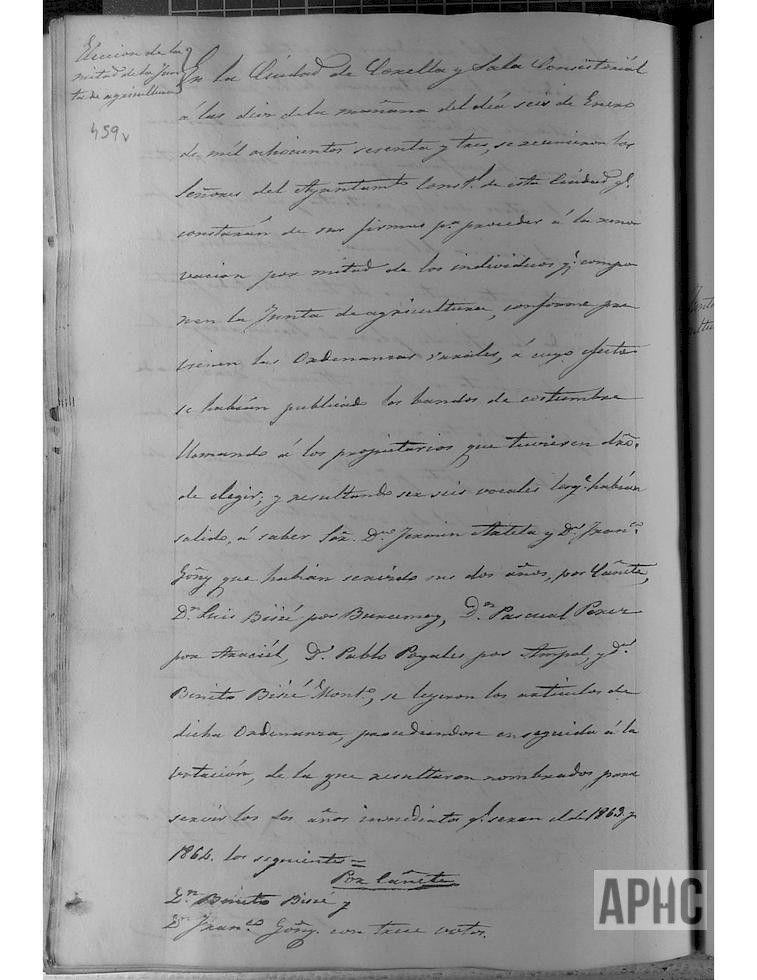 Eleccion de la
mitad de la Jun
ta de agricultura
459v
En la Ciudad de Corella y Sala Consistorial
á las diez de la mañana del dia seis de Enero
de mil ochocientos sesenta y tres, se reunieron los
Señores del Ayuntamto Constl. de esta Ciudad q.
constarán de sus firmas pa. proceder á la reno
vacion por mitad de los individuos q. compo
nen la Junta de agricultura, conforme pre
vienen las Ordenanzas rurales, á cuyo efecto
se habian publicado los bandos de costumbre
llamando á los propietarios que tuvieren dro.
de elegir; y resultando ser seis vocales los q. habian
salido, á saber Dn. Fermin y Dn. Franco.
Goñy que habian servido sus dos años, por Cañete,
Dn. Luis Bisié por Dn. Pascual Perez
por Araciél, Dn. Pablo Poyales por Ampol, y dn.
Benito Bisié se leyeron los articulos de
dicha Ordenanza, procediendose en seguida á la
votación, de la que resultaron nombrados para
servir los dos años inmediatos q. seran el de 1863 y
1864. los siguientes =
Por Cañete
Dn. Benito Bisié y
Dn Franco. Goñy. con trece votos.
APHC